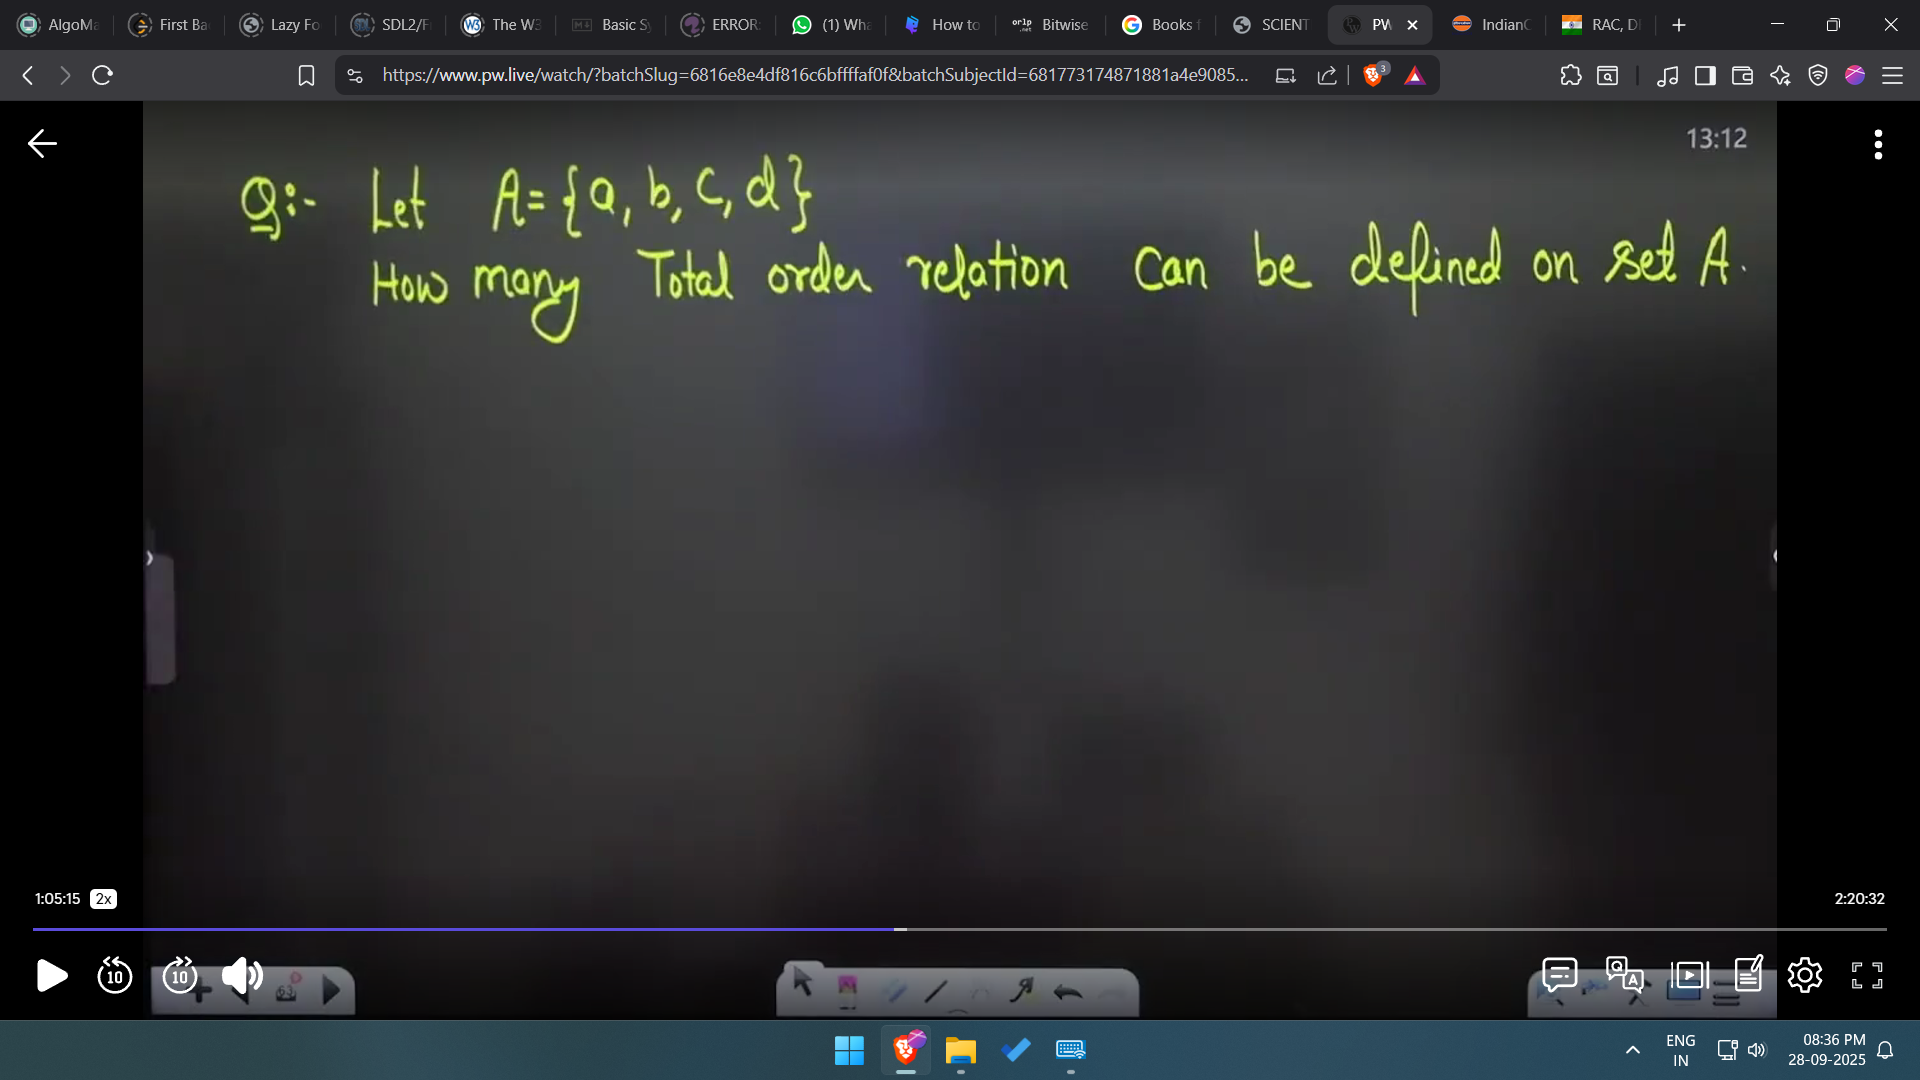 AlgoMa
First Ba
Lazy Fo
SDL2/F
The W3
Basic Sy
ERROR:
(1) Wha
How to
Bitwise
Books f
SCIENT
PW
IndianO
RAC, D
https://www.pw.live/watch/?batchSlug=6816e8e4df816c6bffffaf0f&batchSubjectId=681773174871881a4e9085...
3
13:12
Q:- Let A={a, b, c, d}
How many Total order relation can be defined on set A.
1:05:15 2x
2:20:32
10
10
63
Q A
ENG
IN
08:36 PM
28-09-2025